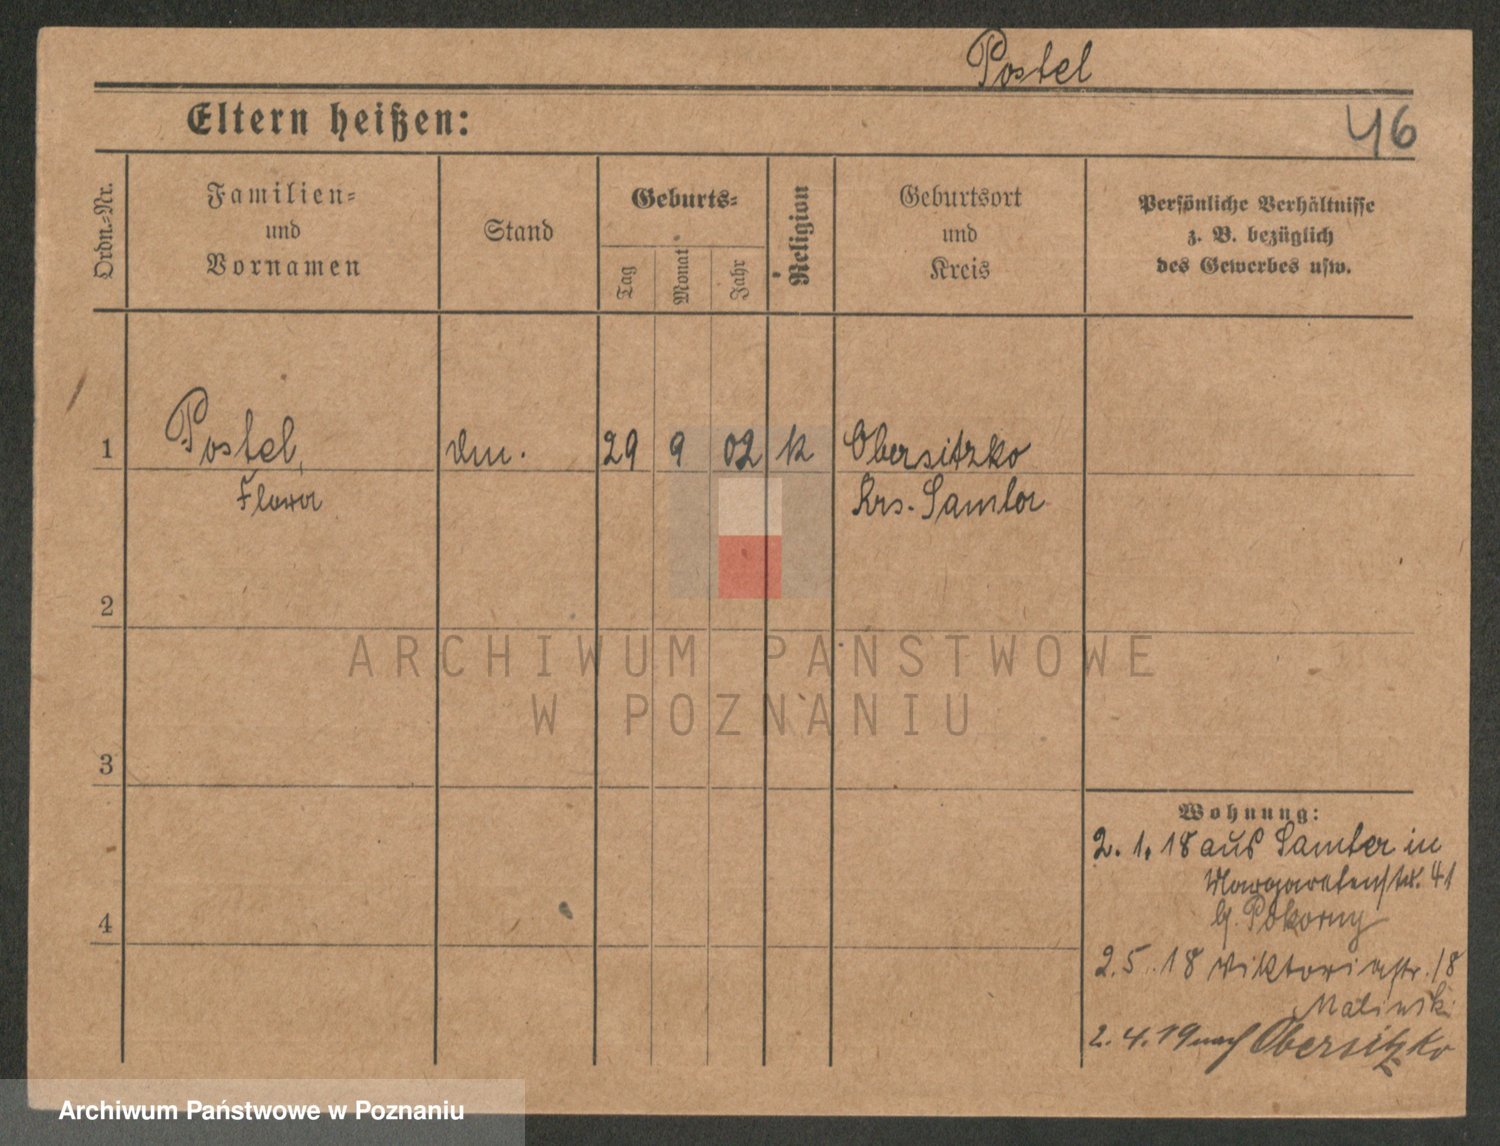 Postel
46
Eltern heißen:
Ordn.-Nr.
Familien-
und
Vornamen
Stand
Geburts-
Tag
Monat
Jahr
Religion
Geburtsort
und
Kreis
Persönliche Verhältnisse
z. B. bezüglich
des Gewerbes usw.
1
Postel,
29 9 02 k
Obersitzko
Flora
Krs. Samter
2
ARCHIWUM PAŃSTWOWE
W POZNANIU
3
Wohnung:
2. 1. 18 aus Samter in
Margaretenstr. 41
b. Pokorny
4
2. 5. 18 Viktoriastr. 18
Malinski
2. 4. 19 nach Obersitzko
Archiwum Państwowe w Poznaniu